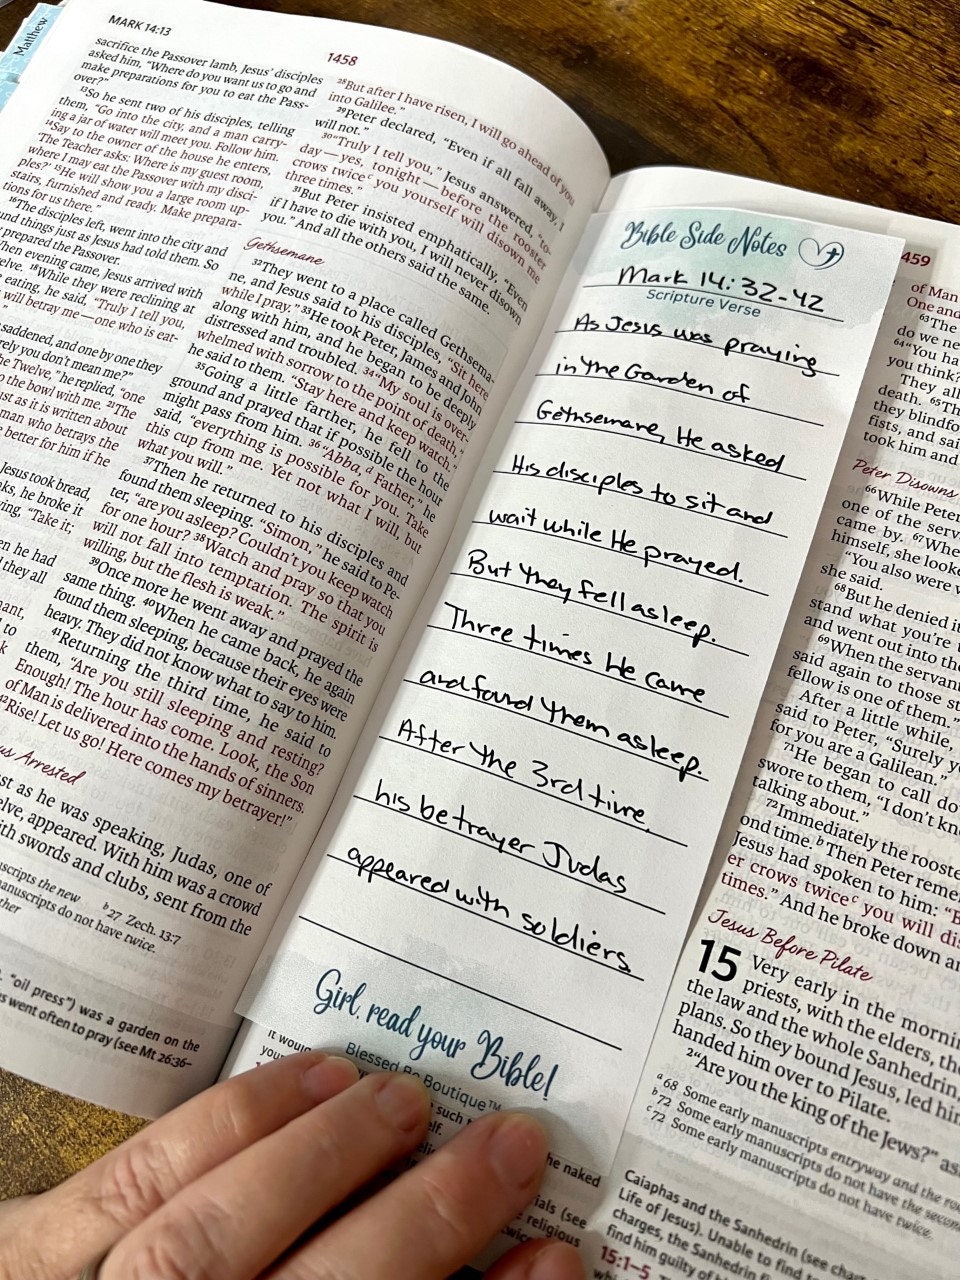 Matthew
MARK 14:13
1458
sacrifice the Passover lamb, Jesus' disciples
asked him, "Where do you want us to go and
make preparations for you to eat the Pass-
over?"
13So he sent two of his disciples, telling
them, "Go into the city, and a man carry-
ing a jar of water will meet you. Follow him.
14Say to the owner of the house he enters,
'The Teacher asks: Where is my guest room,
where I may eat the Passover with my disci-
ples?' 15He will show you a large room up-
stairs, furnished and ready. Make prepara-
tions for us there."
16The disciples left, went into the city and
und things just as Jesus had told them. So
prepared the Passover.
hen evening came, Jesus arrived with
elve. 18While they were reclining at
eating, he said, "Truly I tell you,
will betray me—one who is eat-
saddened, and one by one they
rely you don't mean me?"
he Twelve," he replied, "one
o the bowl with me. 21The
ust as it is written about
man who betrays the
e better for him if he
Jesus took bread,
ks, he broke it
ing, "Take it;
en he had
they all
nant,
to
28But after I have risen, I will go ahead of you
into Galilee."
29Peter declared, "Even if all fall away, I
will not."
30"Truly I tell you," Jesus answered, "to-
day—yes, tonight—before the rooster
crows twice c you yourself will disown me
three times."
31But Peter insisted emphatically, "Even
if I have to die with you, I will never disown
you." And all the others said the same.
Gethsemane
32They went to a place called Gethsema-
ne, and Jesus said to his disciples, "Sit here
while I pray." 33He took Peter, James and John
along with him, and he began to be deeply
distressed and troubled. 34"My soul is over-
whelmed with sorrow to the point of death,"
he said to them. "Stay here and keep watch."
35Going a little farther, he fell to the
ground and prayed that if possible the hour
might pass from him. 36"Abba, d Father," he
said, "everything is possible for you. Take
this cup from me. Yet not what I will, but
what you will."
37Then he returned to his disciples and
found them sleeping. "Simon," he said to Pe-
ter, "are you asleep? Couldn't you keep watch
for one hour? 38Watch and pray so that you
will not fall into temptation. The spirit is
willing, but the flesh is weak."
39Once more he went away and prayed the
same thing. 40When he came back, he again
found them sleeping, because their eyes were
heavy. They did not know what to say to him.
41Returning the third time, he said to
them, "Are you still sleeping and resting?
Enough! The hour has come. Look, the Son
of Man is delivered into the hands of sinners.
42Rise! Let us go! Here comes my betrayer!"
us Arrested
st as he was speaking, Judas, one of
elve, appeared. With him was a crowd
ith swords and clubs, sent from the
uscripts the new
manuscripts do not have twice.
b 27 Zech. 13:7
"oil press") was a garden on the
s went often to pray (see Mt 26:36–
Bible Side Notes
Mark 14:32-42
Scripture Verse
As Jesus was praying
in the Garden of
Gethsemane, He asked
His disciples to sit and
wait while He prayed.
But they fell asleep.
Three times He came
and found them asleep.
After the 3rd time,
his betrayer Judas
appeared with soldiers.
Girl, read your Bible!
Blessed Be Boutique™
it would
your
such
he naked
ials (see
religious
459
of Man
One and
63The
do we ne
64"You ha
you think?
They all
death. 65Th
they blindfo
fists, and sai
took him and
Peter Disowns
66While Peter
one of the serv
came by. 67Whe
himself, she looke
"You also were w
she said.
68But he denied it
stand what you're
and went out into the
69When the servant
said again to those st
fellow is one of them."
After a little while,
said to Peter, "Surely yo
for you are a Galilean."
71He began to call do
swore to them, "I don't kn
talking about."
72Immediately the rooste
ond time. b Then Peter reme
Jesus had spoken to him: "B
er crows twice c you will dis
times." And he broke down an
Jesus Before Pilate
15 Very early in the mornin
priests, with the elders, the
the law and the whole Sanhedrin,
plans. So they bound Jesus, led him
handed him over to Pilate.
2"Are you the king of the Jews?" as
a 68 Some early manuscripts entryway and the roo
b 72 Some early manuscripts do not have the second
c 72 Some early manuscripts do not have twice.
Caiaphas and the Sanhedrin (see char
Life of Jesus). Unable to find
charges, the Sanhedrin
find him guilty of
15:1–5